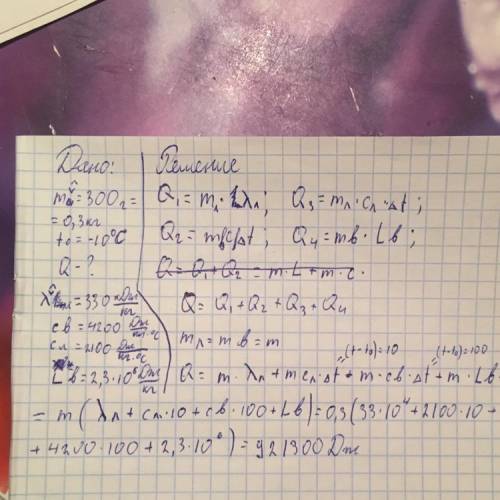 Дано:
m л = 300 г =
= 0,3 кг
t₀ = -10°C
Q - ?
λ л = 330 кДж/кг
cв = 4200 Дж/кг·°C
cл = 2100 Дж/кг·°C
Lв = 2,3·10⁶ Дж/кг
Решение
Q₁ = mл · λл; Q₃ = mл · cл · Δt;
Q₂ = mвcвΔt; Q₄ = mв · Lв;
Q = Q₁ + Q₂ = m·L + m·c.
Q = Q₁ + Q₂ + Q₃ + Q₄
mл = mв = m
(t-t₀)=10 (t-t₀)=100
Q = m · λл + mcл·Δt + m · cв · Δt + m · Lв
= m (λл + cл·10 + cв·100 + Lв) = 0,3(33·10⁴ + 2100·10 +
+ 4200·100 + 2,3·10⁶) = 921300 Дж